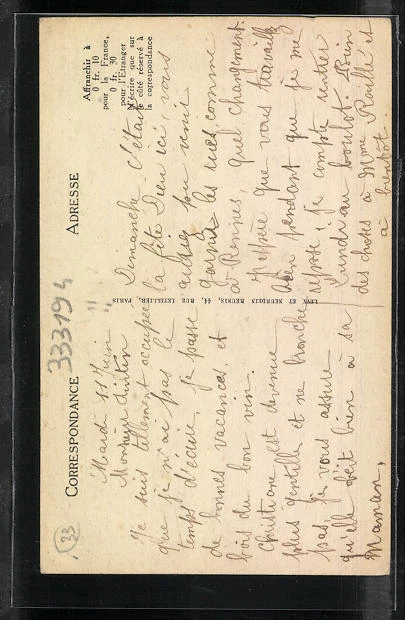 CORRESPONDANCE
333194
23
Mardi 11 Juin
Monsieur
Je suis tellement occupée
que je n'ai pas le
temps d'écrire, je passe
de bonnes vacances, et
bois du bon vin.
Christiane est devenue
plus gentille et ne bronche
pas, je vous assure
qu'elle obéit bien à sa
Maman,
LEVY ET NEURDEIN RÉUNIS, 44, RUE LETELLIER, PARIS
ADRESSE
Affranchir à
0 fr. 10
pour la France,
0 fr. 30
pour l'Etranger
N'écrire que sur
le côté réservé à
la correspondance
Dimanche c'était
la fête Dieu ici, vous
auriez pu venir
garnir les rues, comme
à Rennes, quel changement.
J'espère que vous travaillez
bien pendant que je me
repose, je compte rentrer
lundi au boulot. Bien
des choses à Mme et
à bientôt.